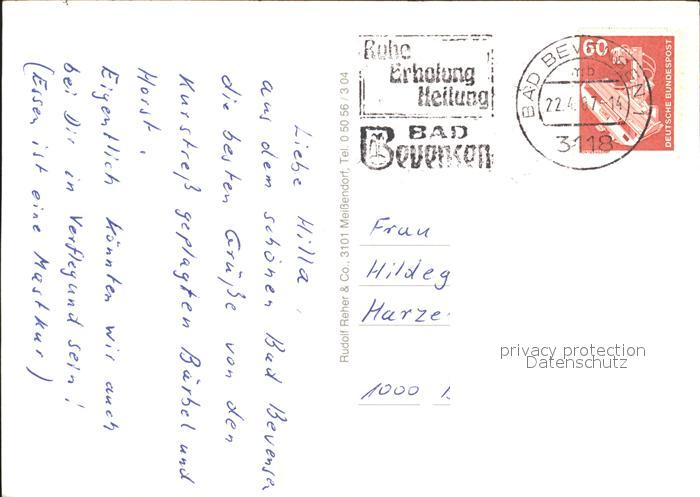 Liebe Hilla,
aus dem schönen Bad Bevensen
die besten Grüße von den
Kurstreß geplagten Bärbel und
Horst.
Eigentlich könnten wir auch
bei Dir in Verflegund sein!
(Essen ist eine Mastkur)
Rudolf Reher & Co., 3101 Meißendorf, Tel. 0 50 56 / 3 04
Ruhe
Erholung
Heilung
BAD
Bevensen
BAD BEVENSEN 1
mb
22.4. 7-14
3118
60
DEUTSCHE BUNDESPOST
Frau
Hildeg
Harze
1000
privacy protection
Datenschutz